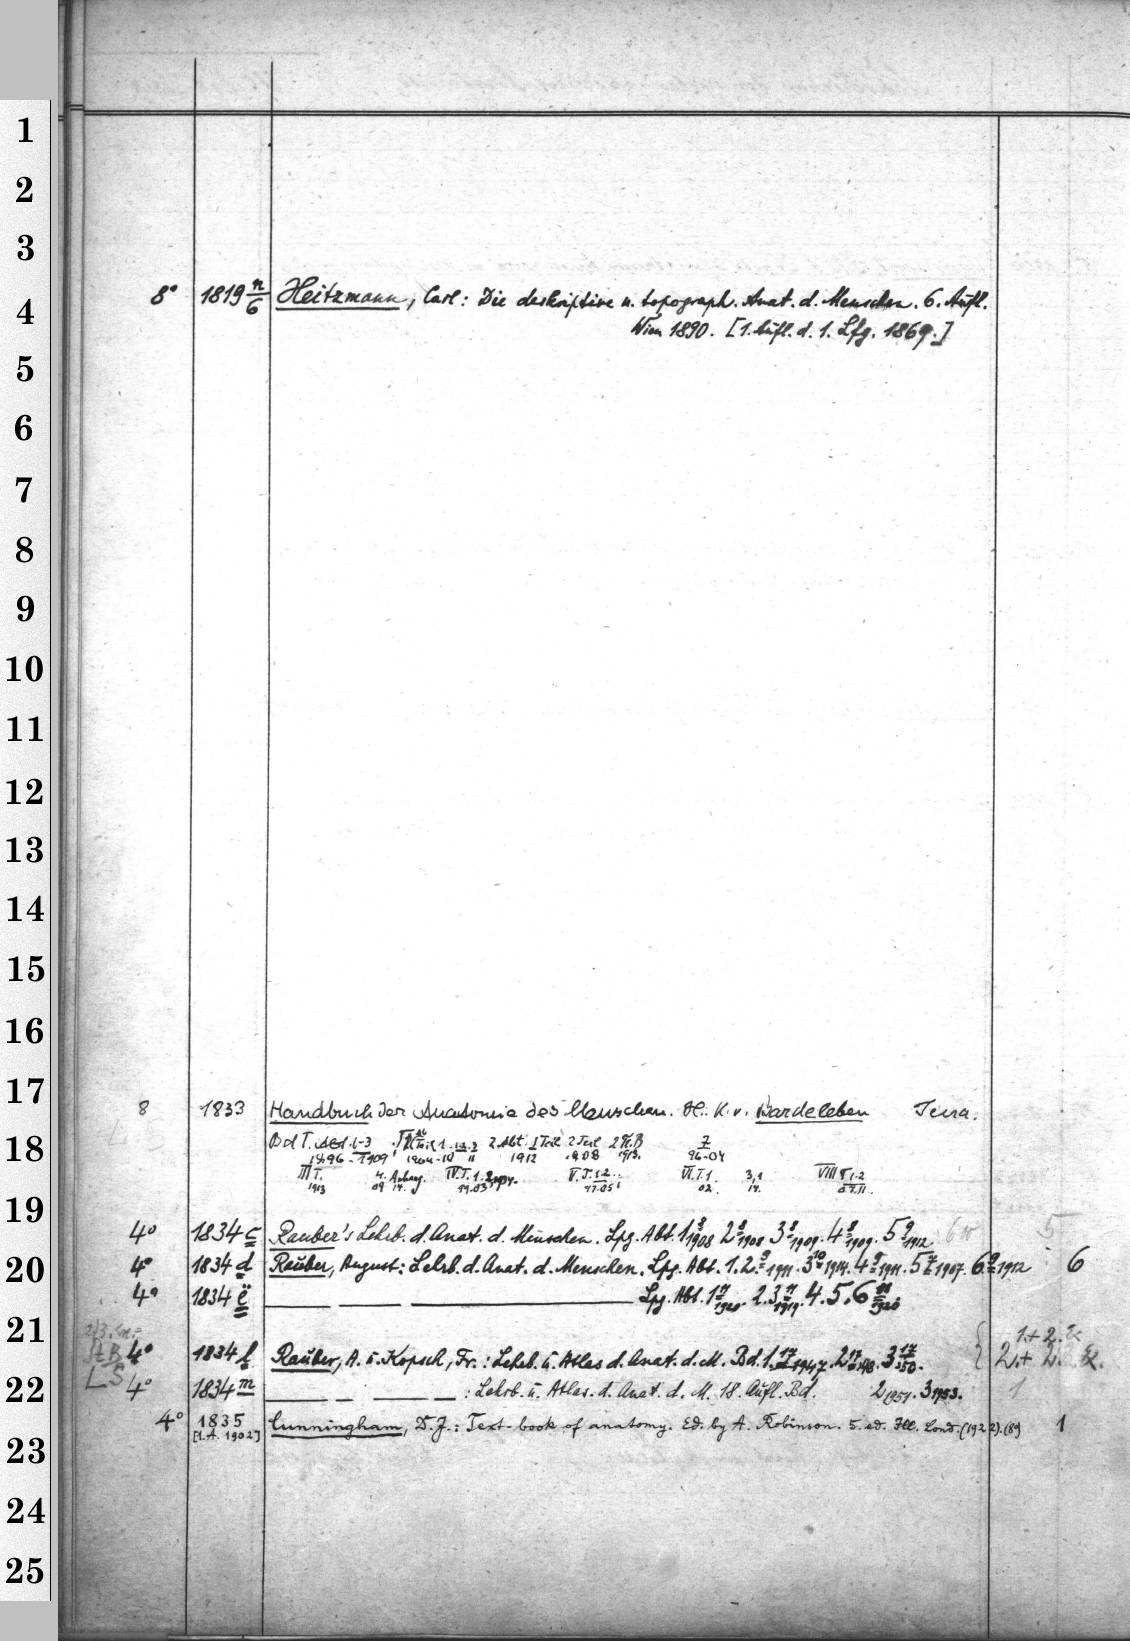 1
2
3
8° 1819 n/6 Heitzmann, Carl: Die deskriptive u. topograph. Anat. d. Menschen. 6. Aufl.
4
Wien 1890. [1. Aufl. d. 1. Lfg. 1869.]
5
6
7
8
9
10
11
12
13
14
15
16
17
8 1833 Handbuch der Anatomie des Menschen. H. K. v. Bardeleben Jena.
18
1896 - 1909 1904-10 11 1912 1908 1913. 96-04
III T. 4. IV. T. 1. V. T. 1-2 VI. T. 1 3,1 VIII
1913 09 14. 02. 14.
19
4° 1834 c Rauber's Lehrb. d. Anat. d. Menschen. Lpg. Abt. 1 8 1908 2 8 1908 3 8 1909. 4 8 1909. 5 9 1912. 5
20
4° 1834 d Rauber, August: Lehrb. d. Anat. d. Menschen. Lpg. Abt. 1. 2. 9 1911 3 10 1914. 4 9 1911. 5 7 1907. 6 9 1912 6
4° 1834 ë Lpg. Abt. 1 11 1920. 2. 3 11 1919. 4. 5. 6 11 1920
21
1. + 2.
4° 1834 l Rauber, A. u. Kopsch, Fr.: Lehrb. u. Atlas d. Anat. d. M. Bd. 1. 17 1947. 2 17 48. 3 17 50. 2. +
22
4° 1834 m : Lehrb. u. Atlas. d. Anat. d. M. 18. Aufl. Bd. 2 1951. 3 1953. 1
4° 1835 Cunningham, D. J.: Text-book of anatomy. Ed. by A. Robinson. 5. ed. Ill. Lond. (1922). (8°) 1
[1. A. 1902]
23
24
25